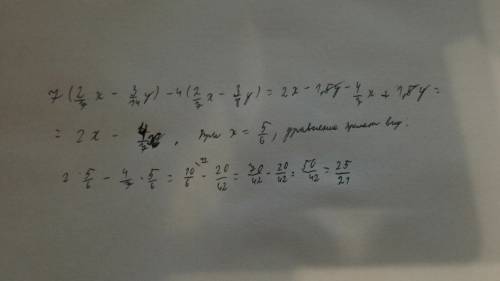 7 (2/7 x - 3/14 y) - 4 (2/7 x - 3/8 y) = 2x - 1,5y - 4/7 x + 1,5y =
= 2x - 4/7 x, при x = 5/6, уравнение примет вид:
2 · 5/6 - 4/7 · 5/6 = 10/6 - 20/42 = 70/42 - 20/42 = 50/42 = 25/21